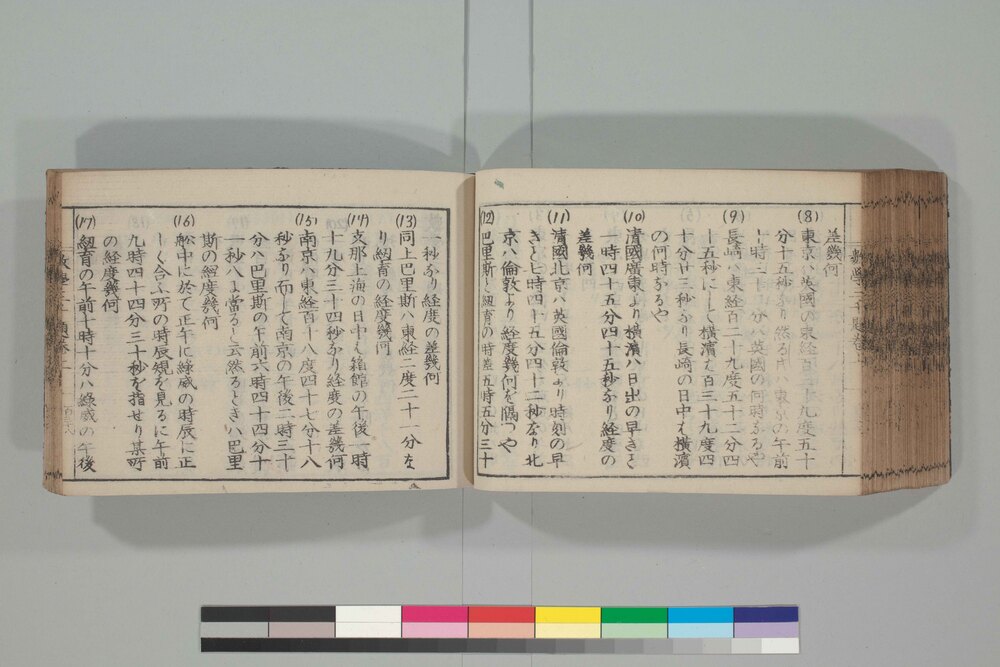 差幾何
(8) 東京ハ英國の東経百三十九度五十
分十五秒なり然る時ハ東京の午前
十時二十分ハ英國の何時なるや
(9) 長崎ハ東経百二十九度五十二分四
十五秒にして横濱ハ百三十九度四
十分廿三秒なり長崎の日中ハ横濱
の何時なるや
(10) 清國廣東より横濱ハ日出の早きこと
一時四十五分四十五秒なり経度の
差幾何
(11) 清國北京ハ英國倫敦より時刻の早
きこと七時四十五分四十二秒なり北
京ハ倫敦より経度幾何を隔つや
(12) 巴里斯と紐育の時差五時五分三十
一秒なり経度の差幾何
(13) 同上巴里斯ハ東経二度二十一分な
り紐育の経度幾何
(14) 支那上海の日中ハ箱館の午後一時
十九分三十四秒なり経度の差幾何
(15) 南京ハ東経百十八度四十七分十八
秒なり而して南京の午後二時三十
分ハ巴里斯の午前六時四十四分十
一秒八に當ると云然るときハ巴里
斯の経度幾何
(16) 舩中に於て正午に緑威の時辰に正
しく合ふ所の時辰規を見るに午前
九時四十四分三十秒を指せり其所
の経度幾何
(17) 紐育の午前十時十分ハ緑威の午後